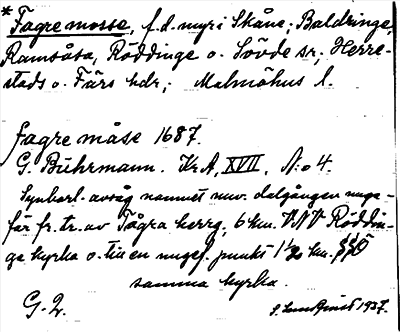 * Fagremosse, f.d. myr i Skåne; Baldringe,
Ramsåsa, Röddinge o. Sövde sr; Herre-
stads o. Färs hdr; Malmöhus l.
fagre måse 1687.
G. Buhrmann. KrA, XVII, N:o 4.
Synberl. avsåg namnet nuv. dalgången unge-
fär fr. tr. av Tågra herrg, 6 km. VNV Röddin-
ge kyrka o. till en ungef. punkt 1½ km. SSO
samma kyrka.
G. 2.
1937.